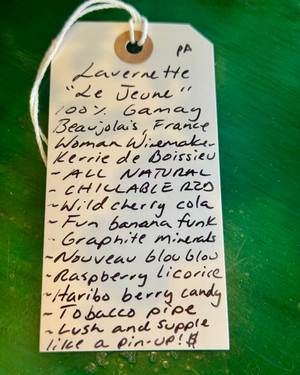 PA
Lavernette
"Le Jeune"
100% Gamay
Beaujolais, France
Woman Winemaker
Kerrie de Boissieu
- ALL NATURAL
- CHILLABLE RED
- Wild cherry cola
- Fun banana funk
- Graphite minerals
- Nouveau blou blou
- Raspberry licorice
- Haribo berry candy
- Tobacco pipe
- Lush and supple
like a pin-up!